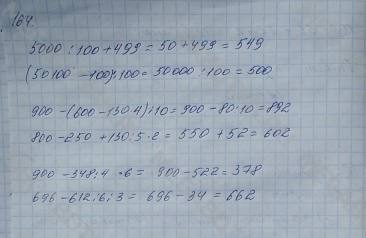 164.
5000 : 100 + 499 = 50 + 499 = 549
(50100 - 100) : 100 = 50000 : 100 = 500
900 - (600 - 130·4) : 10 = 900 - 80 : 10 = 892
800 - 250 + 130 : 5 · 2 = 550 + 52 = 602
900 - 348 : 4 · 6 = 900 - 522 = 378
696 - 612 : 6 : 3 = 696 - 34 = 662